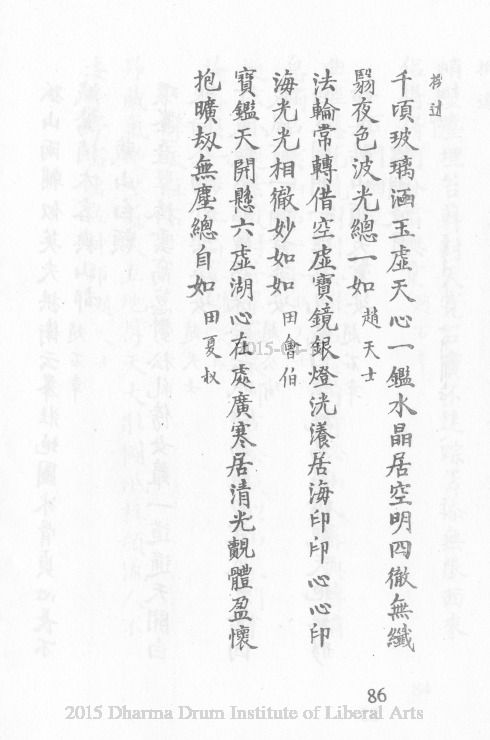 千頃玻璃涵玉虛天心一鑑水晶居空明四徹無纖
翳夜色波光總一如 趙天士
法輪常轉借空虛寶鏡銀燈洸瀁居海印印心心印
海光光相徹妙如如 田會伯
寶鑑天開懸六虛湖心在處廣寒居清光覿體盈懷
抱曠刼無塵總自如 田夏叔
86
2015 Dharma Drum Institute of Liberal Arts